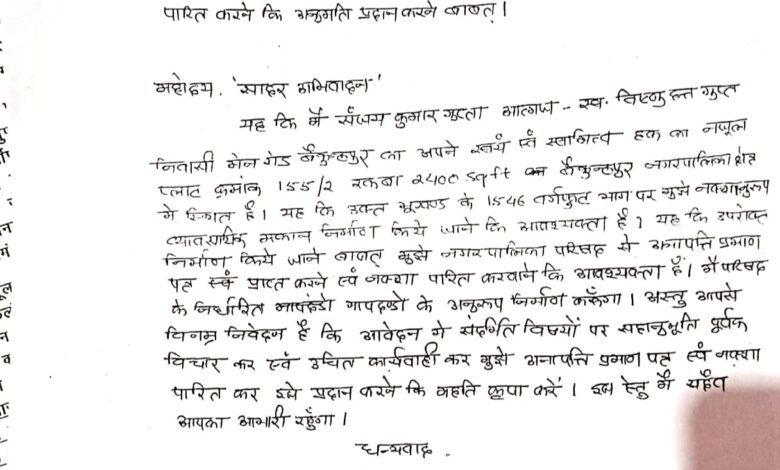 पारित करने कि अनुमति प्रदान करने बाबत्।
महोदय, 'सादर अभिवादन'
यह कि मैं संजय कुमार गुप्ता आत्मज - स्व. विष्णु दत्त गुप्त
निवासी मेन रोड बैकुन्ठपुर का अपने स्वयं एवं स्वामित्व हक का नजूल
प्लाट क्रमांक 155/2 रकबा 2400 sqft बैकुन्ठपुर नगरपालिका क्षेत्र
मे स्थित है। यह कि उक्त भूखण्ड के 1546 वर्गफुट भाग पर मुझे नक्शानुरूप
व्यावसायिक मकान निर्माण किये जाने कि आवश्यक्ता है। यह कि उपरोक्त
निर्माण किये जाने बाबत् मुझे नगरपालिका परिषद से अनापत्ति प्रमाण
पत्र एवं प्राप्त करने एवं नक्शा पारित करवाने कि आवश्यक्ता है। मैं परिषद
के निर्धारित मापदण्डो के अनुरूप निर्माण करूँगा। अस्तु आपसे
विनम्र निवेदन है कि आवेदन मे संदर्भित विषयों पर सहानुभूति पूर्वक
विचार कर एवं उचित कार्यवाही कर मुझे अनापत्ति प्रमाण पत्र एवं नक्शा
पारित कर इसे प्रदान करने कि महति कृपा करें। इस हेतु मैं सदैव
आपका आभारी रहूँगा।
धन्यवाद.